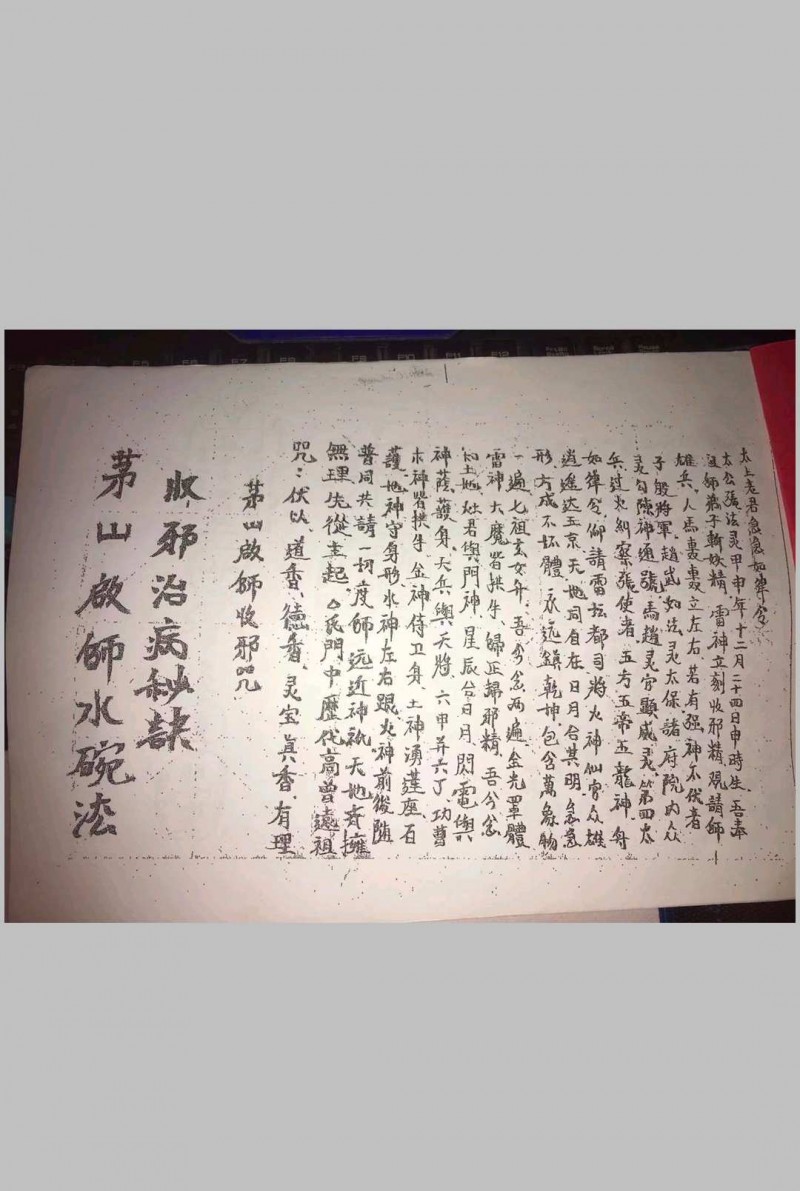 茅山啟師水碗法
收邪治病秘訣
茅山啟師收邪咒
咒：伏以、道香、德香、灵宝真香、有理
無理先從主起、△氏門中歷代高曾遠祖
普同共請一切度師远近神祇天地齊擁
護、地神守身形水神左右跟、火神前後随
木神皆拱手金神侍卫身、土神湧莲座石
神蔭護身、天兵與天將、六甲并六丁功曹
土地、灶君與門神、星辰兮日月、閃電與
雷神大魔皆拱手、歸正歸邪精、吾今念
一遍七祖玄女升、吾今念两遍、金光罩體
形、方成不坏體、永远鎮乾坤、包含萬象物
逍遥达五京天、地同自在日月合其明、急急
如律令、仰請雷坛都司將火神仙官众雄
兵过火糾察張使者、五方五帝五龍神舟
灵勾陳神通號馬趙灵官顯威灵、第四太
子殷將軍、趙武如法灵太保諸府院内众
雄兵、人馬轟轟立左右、若有强神不伏者
師弟子斬妖精、雷神立刻收邪精、观請師
太公張法灵甲申年十二月二十四日申時生、吾奉
太上老君急急如律令